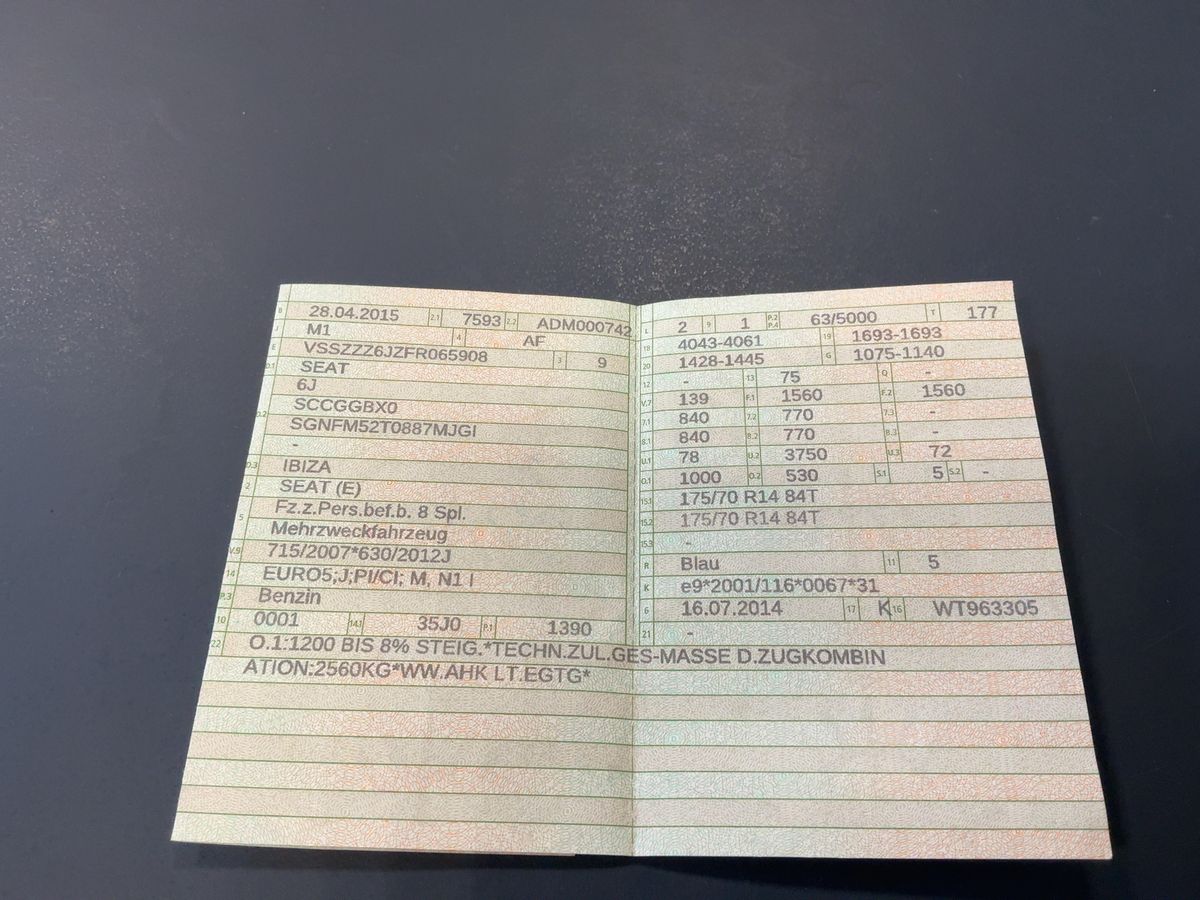 B 28.04.2015 2.1 7593 2.2 ADM000742
J M1 4 AF
E VSSZZZ6JZFR065908 3 9
D.1 SEAT
6J
D.2 SCCGGBX0
SGNFM52T0887MJGI
-
D.3 IBIZA
2 SEAT (E)
5 Fz.z.Pers.bef.b. 8 Spl.
Mehrzweckfahrzeug
V.9 715/2007*630/2012J
14 EURO5;J;PI/CI; M, N1 I
P.3 Benzin
10 0001 14.1 35J0 P.1 1390
L 2 9 1 P.2 P.4 63/5000 T 177
18 4043-4061 19 1693-1693
20 1428-1445 G 1075-1140
12 - 13 75 Q -
V.7 139 F.1 1560 F.2 1560
7.1 840 7.2 770 7.3 -
8.1 840 8.2 770 8.3 -
U.1 78 U.2 3750 U.3 72
O.1 1000 O.2 530 S.1 5 S.2 -
15.1 175/70 R14 84T
15.2 175/70 R14 84T
15.3 -
R Blau 11 5
K e9*2001/116*0067*31
6 16.07.2014 17 K 16 WT963305
21 -
22 O.1:1200 BIS 8% STEIG.*TECHN.ZUL.GES-MASSE D.ZUGKOMBIN
ATION:2560KG*WW.AHK LT.EGTG*